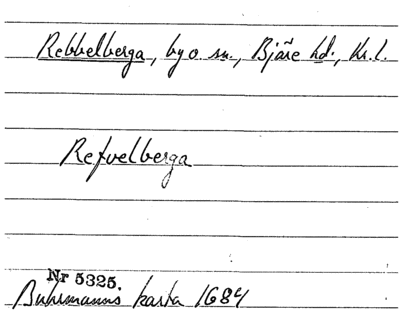 Rebbelberga, by o sn., Bjäre hd., Kr. l.
Refvelberga
Nr 5325.
Buhrmanns karta 1684